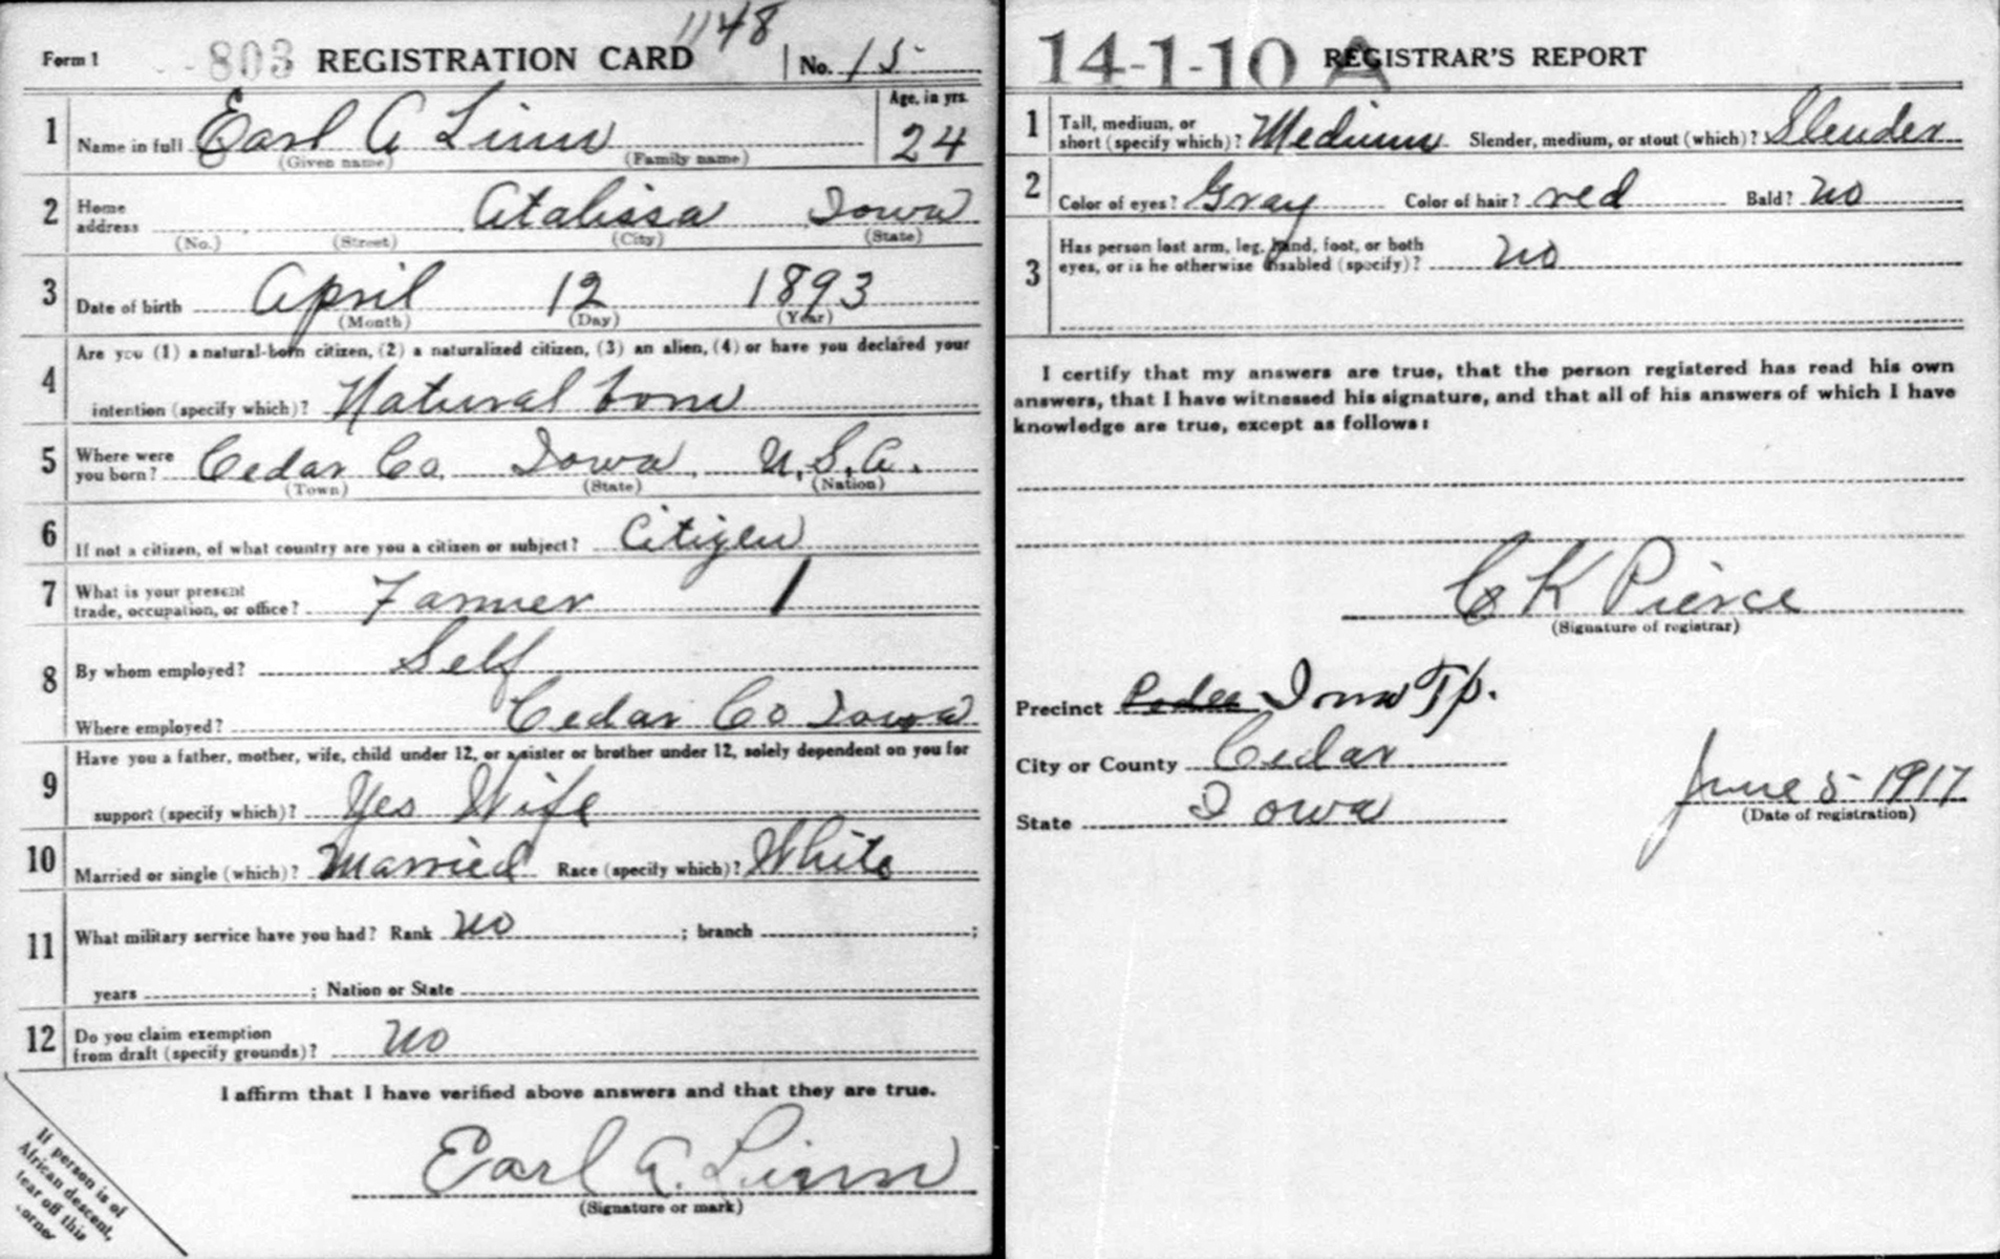 1148
Form 1 803 REGISTRATION CARD No. 15
1 Name in full Earl A Linn Age, in yrs. 24
(Given name) (Family name)
2 Home address Atalissa Iowa
(No.) (Street) (City) (State)
3 Date of birth April 12 1893
(Month) (Day) (Year)
4 Are you (1) a natural-born citizen, (2) a naturalized citizen, (3) an alien, (4) or have you declared your
intention (specify which)? Natural born
5 Where were you born? Cedar Co. Iowa U.S.A.
(Town) (State) (Nation)
6 If not a citizen, of what country are you a citizen or subject? Citizen
7 What is your present
trade, occupation, or office? Farmer
8 By whom employed? Self
Where employed? Cedar Co Iowa
9 Have you a father, mother, wife, child under 12, or a sister or brother under 12, solely dependent on you for
support (specify which)? Yes Wife
10 Married or single (which)? Married Race (specify which)? White
11 What military service have you had? Rank no ; branch ;
years ; Nation or State
12 Do you claim exemption
from draft (specify grounds)? no
I affirm that I have verified above answers and that they are true.
Earl A. Linn
(Signature or mark)
If person is of
African descent,
tear off this
corner
14-1-10 A REGISTRAR'S REPORT
1 Tall, medium, or
short (specify which)? Medium Slender, medium, or stout (which)? Slender
2 Color of eyes? Gray Color of hair? red Bald? no
3 Has person lost arm, leg, hand, foot, or both
eyes, or is he otherwise disabled (specify)? no
I certify that my answers are true, that the person registered has read his own
answers, that I have witnessed his signature, and that all of his answers of which I have
knowledge are true, except as follows:
C K Pierce
(Signature of registrar)
Precinct Iowa Tp.
City or County Cedar
State Iowa
June 5 1917
(Date of registration)